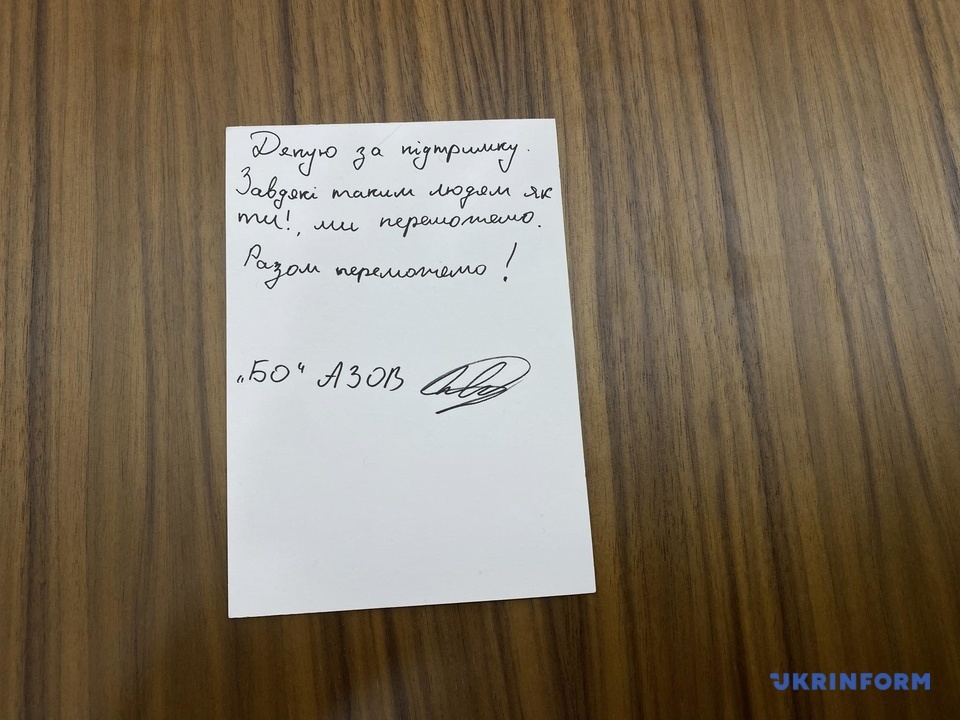 Дякую за підтримку.
Завдякі таким людям як
ти!, ми переможемо.
Разом переможемо!
„БО“ АЗОВ
UKRINFORM